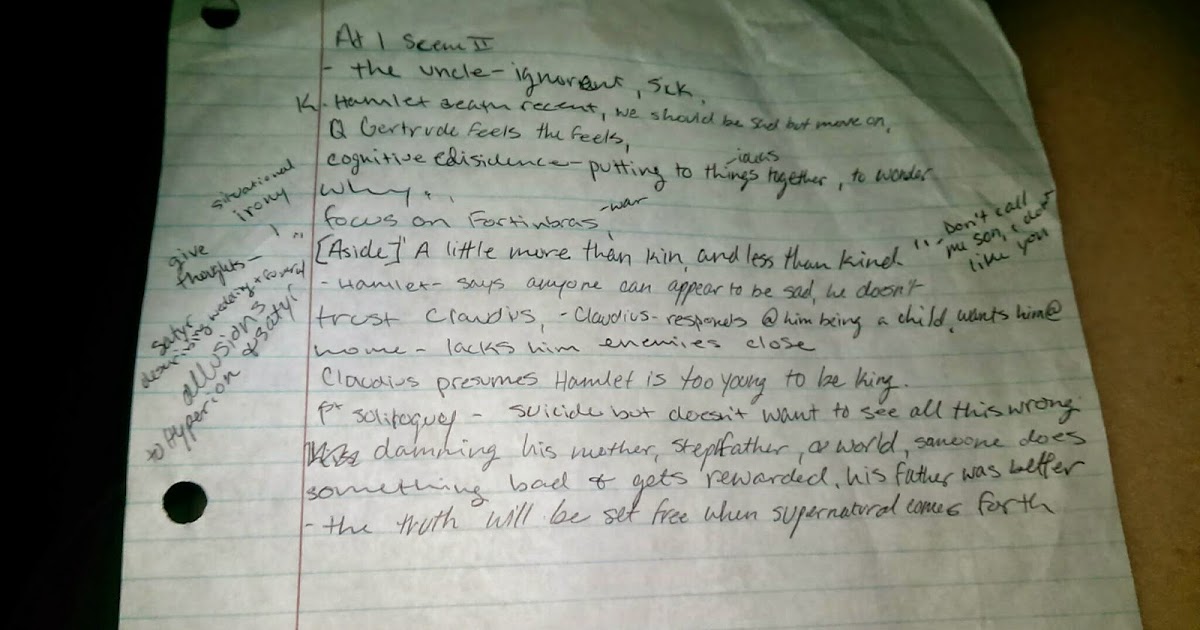 At 1 Scene II
- the uncle - ignorant, sick,
K. Hamlet death recent, we should be sad but move on,
Q Gertrude feels the feels,
cognitive edisidence - putting to things together, to wonder
- ideas
why..
focus on Fortinbras,
- war
[Aside] A little more than kin, and less than kind.
" - Don't call
me son, I don't
like you
- Hamlet - says anyone can appear to be sad, he doesn't
trust Claudius, - Claudius - responds @ him being a child, wants him @
home - lacks him enemies close
Claudius presumes Hamlet is too young to be king.
1st soliloquey - suicide but doesn't want to see all this wrong
damning his mother, stepfather, & world, someone does
something bad & gets rewarded, his father was better
- the truth will be set free when supernatural comes forth
situational
irony
give
thoughts -
satyr
describing wedding + funeral
allusions
to Hyperion & satyr